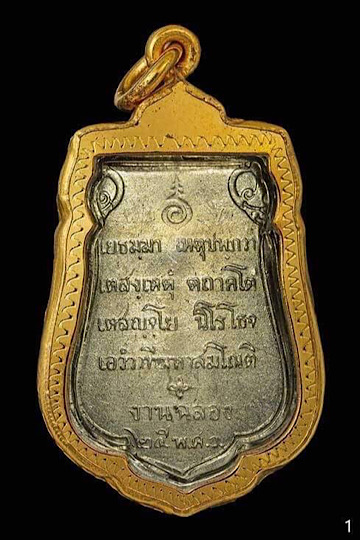 เยธมฺมา เหตุปฺปภวา
เตสํเหตุํ ตถาคโต
เตสญฺจโย นิโรโธจ
เอวํวาทีมหาสมโณติ
งานฉลอง
๒๕ พ.ศ.
1